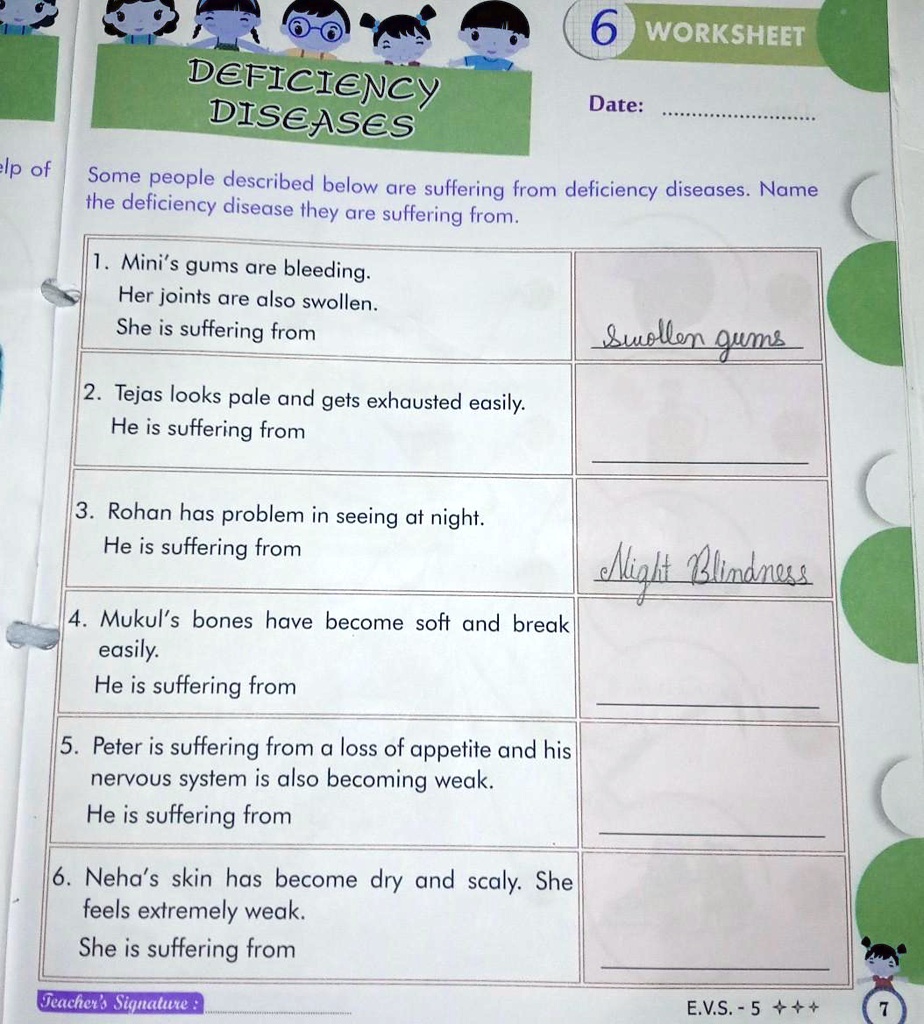 6 WORKSHEET
DEFICIENCY
DISEASES
Date:
elp of
Some people described below are suffering from deficiency diseases. Name
the deficiency disease they are suffering from.
1. Mini's gums are bleeding.
Her joints are also swollen.
She is suffering from
Swollen gums
2. Tejas looks pale and gets exhausted easily.
He is suffering from
3. Rohan has problem in seeing at night.
He is suffering from
Night Blindness
4. Mukul's bones have become soft and break
easily.
He is suffering from
5. Peter is suffering from a loss of appetite and his
nervous system is also becoming weak.
He is suffering from
6. Neha's skin has become dry and scaly. She
feels extremely weak.
She is suffering from
Teacher's Signature :
E.V.S. - 5
7